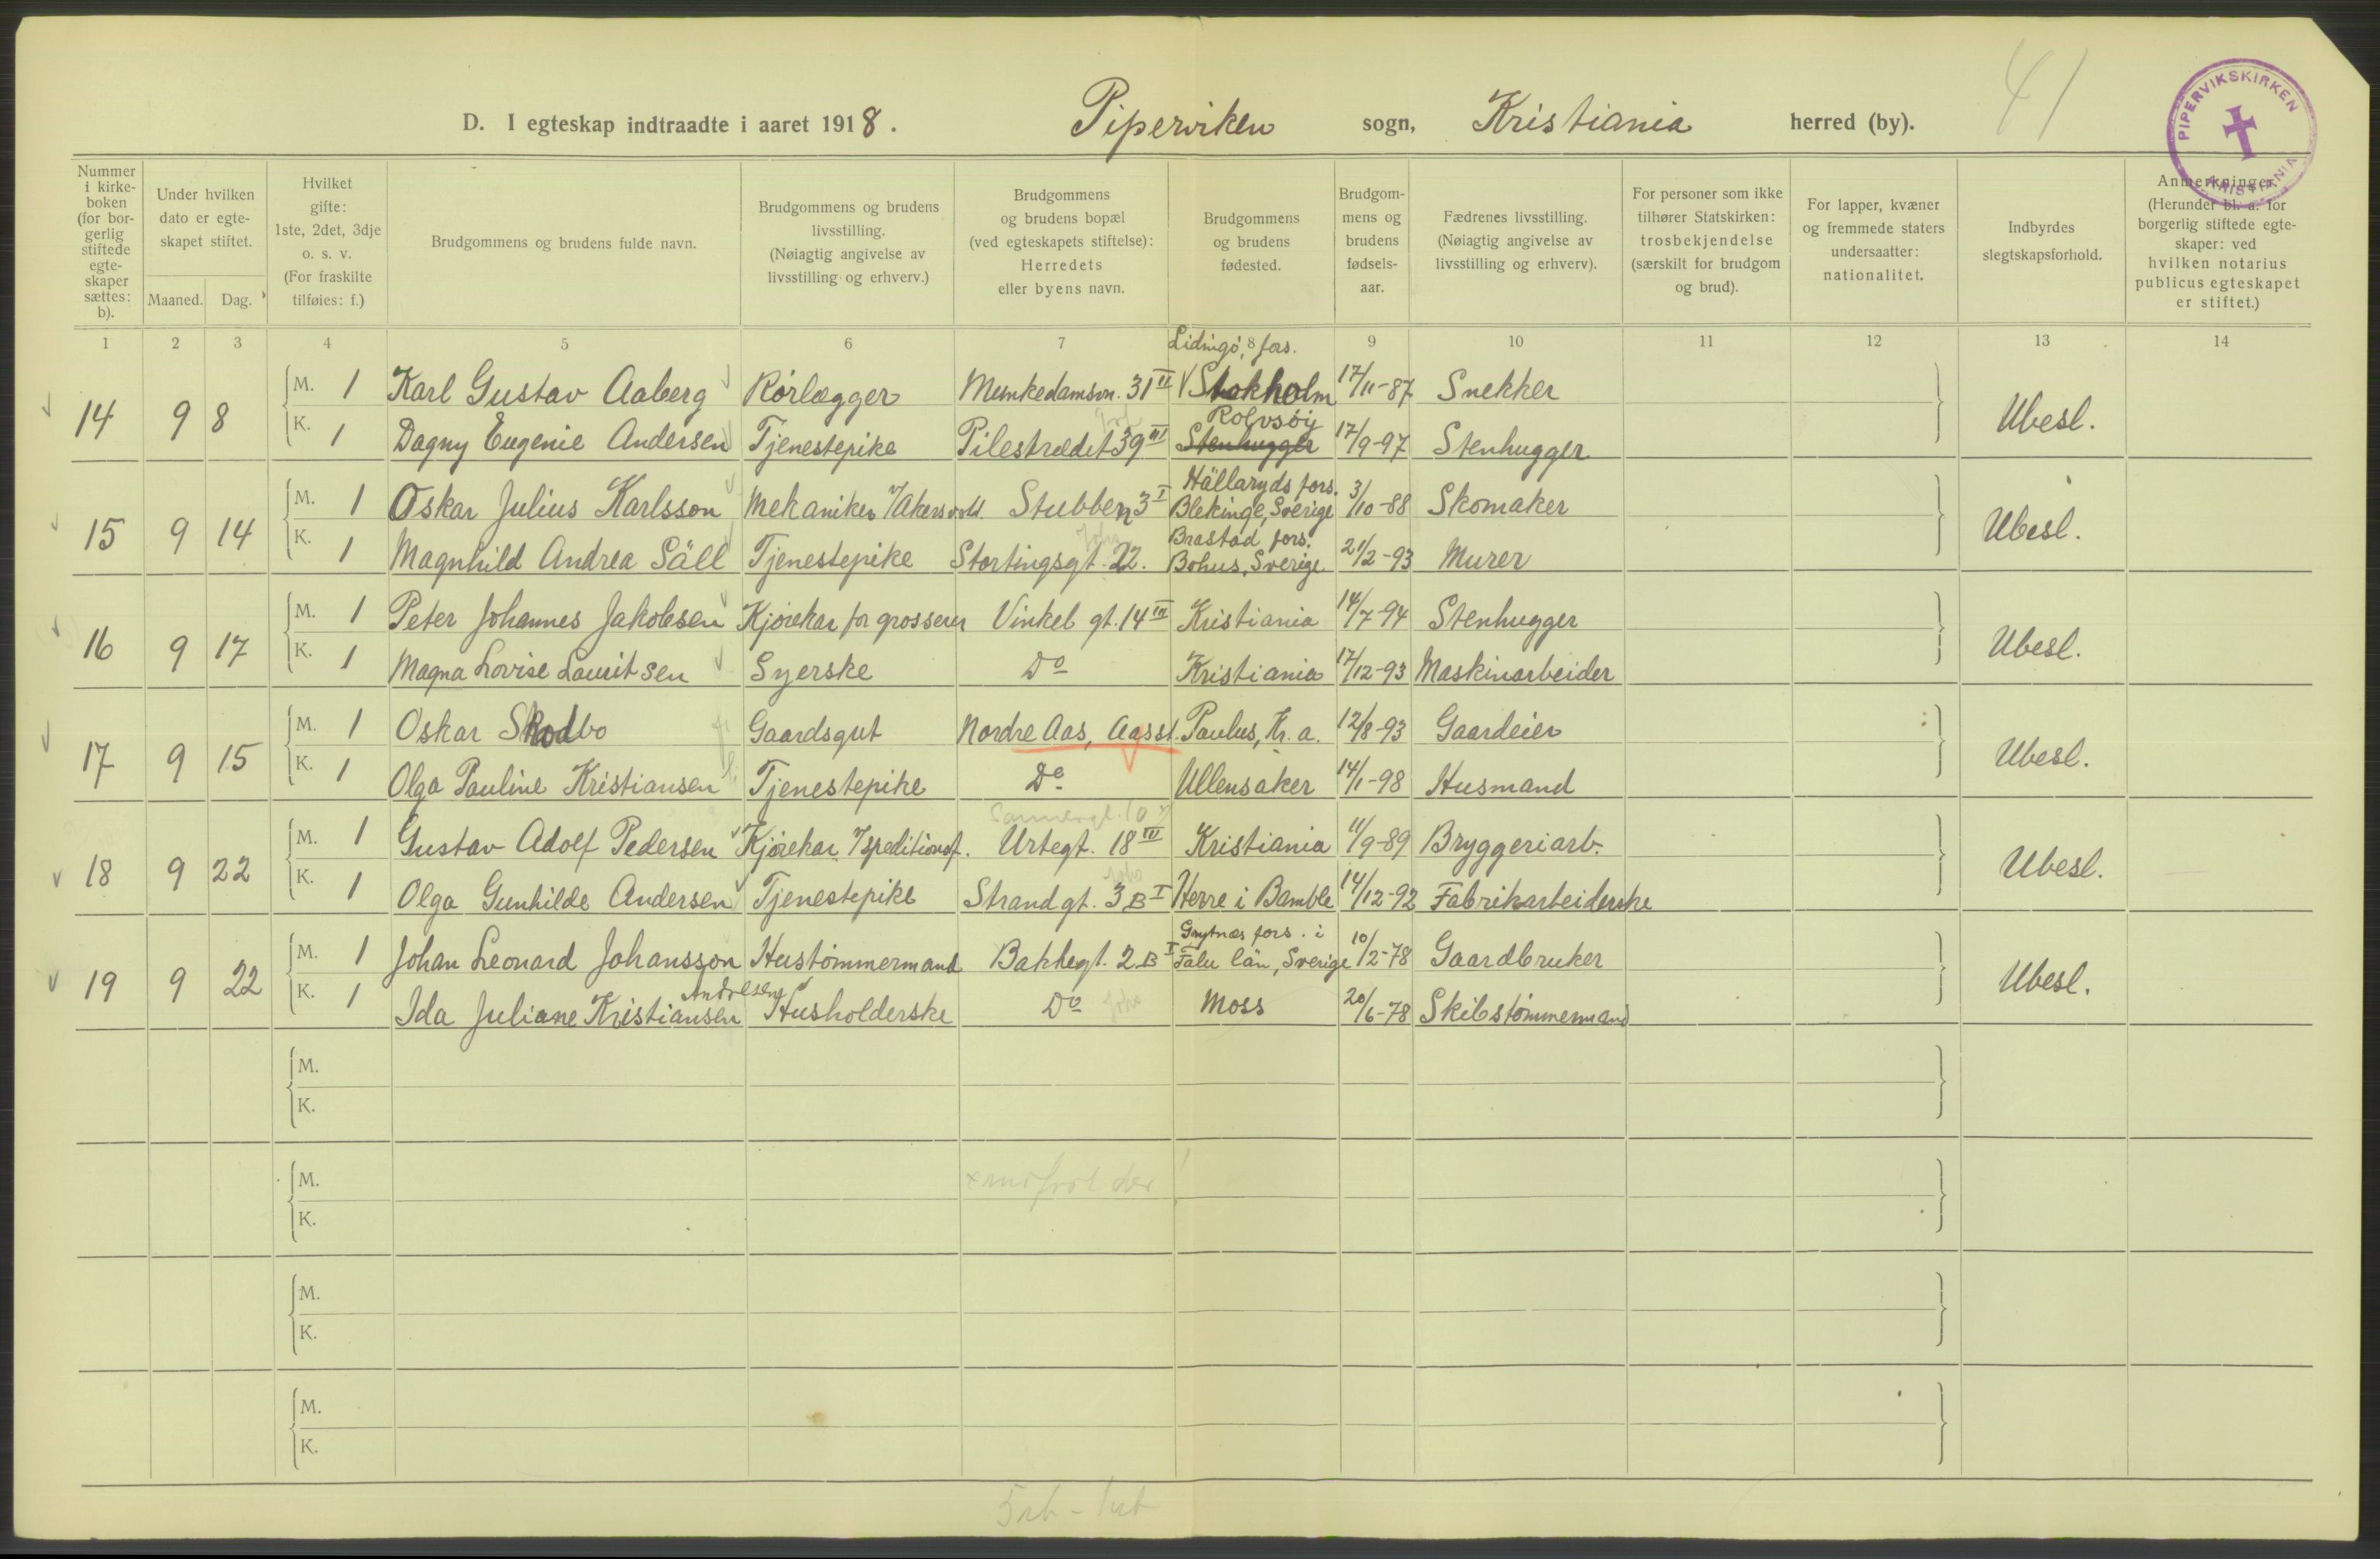 D. I egteskap indtraadte i aaret 1918. Piperviken sogn, Kristiania herred (by). 41
PIPERVIKSKIRKEN KRISTIANIA
Nummer i kirke-boken (for bor-gerlig stiftede egte-skaper sættes: b).
Under hvilken dato er egte-skapet stiftet.
Maaned. Dag.
Hvilket gifte: 1ste, 2det, 3dje o. s. v. (For fraskilte tilføies: f.)
Brudgommens og brudens fulde navn.
Brudgommens og brudens livsstilling. (Nøiagtig angivelse av livsstilling og erhverv.)
Brudgommens og brudens bopæl (ved egteskapets stiftelse): Herredets eller byens navn.
Brudgommens og brudens fødested.
Brudgom-mens og brudens fødsels-aar.
Fædrenes livsstilling. (Nøiagtig angivelse av livsstilling og erhverv).
For personer som ikke tilhører Statskirken: trosbekjendelse (særskilt for brudgom og brud).
For lapper, kvæner og fremmede staters undersaatter: nationalitet.
Indbyrdes slegtskapsforhold.
Anmerkninger. (Herunder bl. a. for borgerlig stiftede egte-skaper: ved hvilken notarius publicus egteskapet er stiftet.)
1 2 3 4 5 6 7 8 9 10 11 12 13 14
Lidingö, fors.
14 9 8 M. 1 Karl Gustav Aaberg Rørlægger Munkedamsvn. 31 II Stokholm 17/11-87 Snekker Ubesl.
Rolvsøy
K. 1 Dagny Eugenie Andersen Tjenestepike Pilestrædet 39 III Stenhugger 17/9-97 Stenhugger
Hällaryds fors.
15 9 14 M. 1 Oskar Julius Karlsson Mekaniker v/Akers v.sld. Stubben 3 I Blekinge, Sverige 3/10-88 Skomaker Ubesl.
Brastad fors.
K. 1 Magnhild Andrea Säll Tjenestepike Stortingsgt. 22. Bohus, Sverige. 21/2-93 Murer
16 9 17 M. 1 Peter Johannes Jakobsen Kjørekar for grosserer Vinkel gt. 14 III Kristiania 14/7-94 Stenhugger Ubesl.
K. 1 Magna Lovise Lauritsen Syerske Do Kristiania 17/12-93 Maskinarbeider
17 9 15 M. 1 Oskar Skodbo Gaardsgut Nordre Aas, Aasst. Paulus, Kr.a. 12/8-93 Gaardeier Ubesl.
K. 1 Olga Pauline Kristiansen Tjenestepike Do Ullensaker 14/1-98 Husmand
18 9 22 M. 1 Gustav Adolf Pedersen Kjørekar v/speditionsf. Urtegt. 18 IV Kristiania 11/9-89 Bryggeriarb. Ubesl.
K. 1 Olga Gunhilde Andersen Tjenestepike Strandgt. 3 B I Herre i Bamble 14/12-92 Fabrikarbeiderske
Grytnæs fors. i
19 9 22 M. 1 Johan Leonard Johansson Hustømmermand Bakkegt. 2.B I Falu län, Sverige 10/2-78 Gaardbruker Ubesl.
Andresens
K. 1 Ida Juliane Kristiansen Husholderske Do Moss 20/6-78 Skibstømmermand
M.
K.
M.
K.
M.
K.
M.
K.